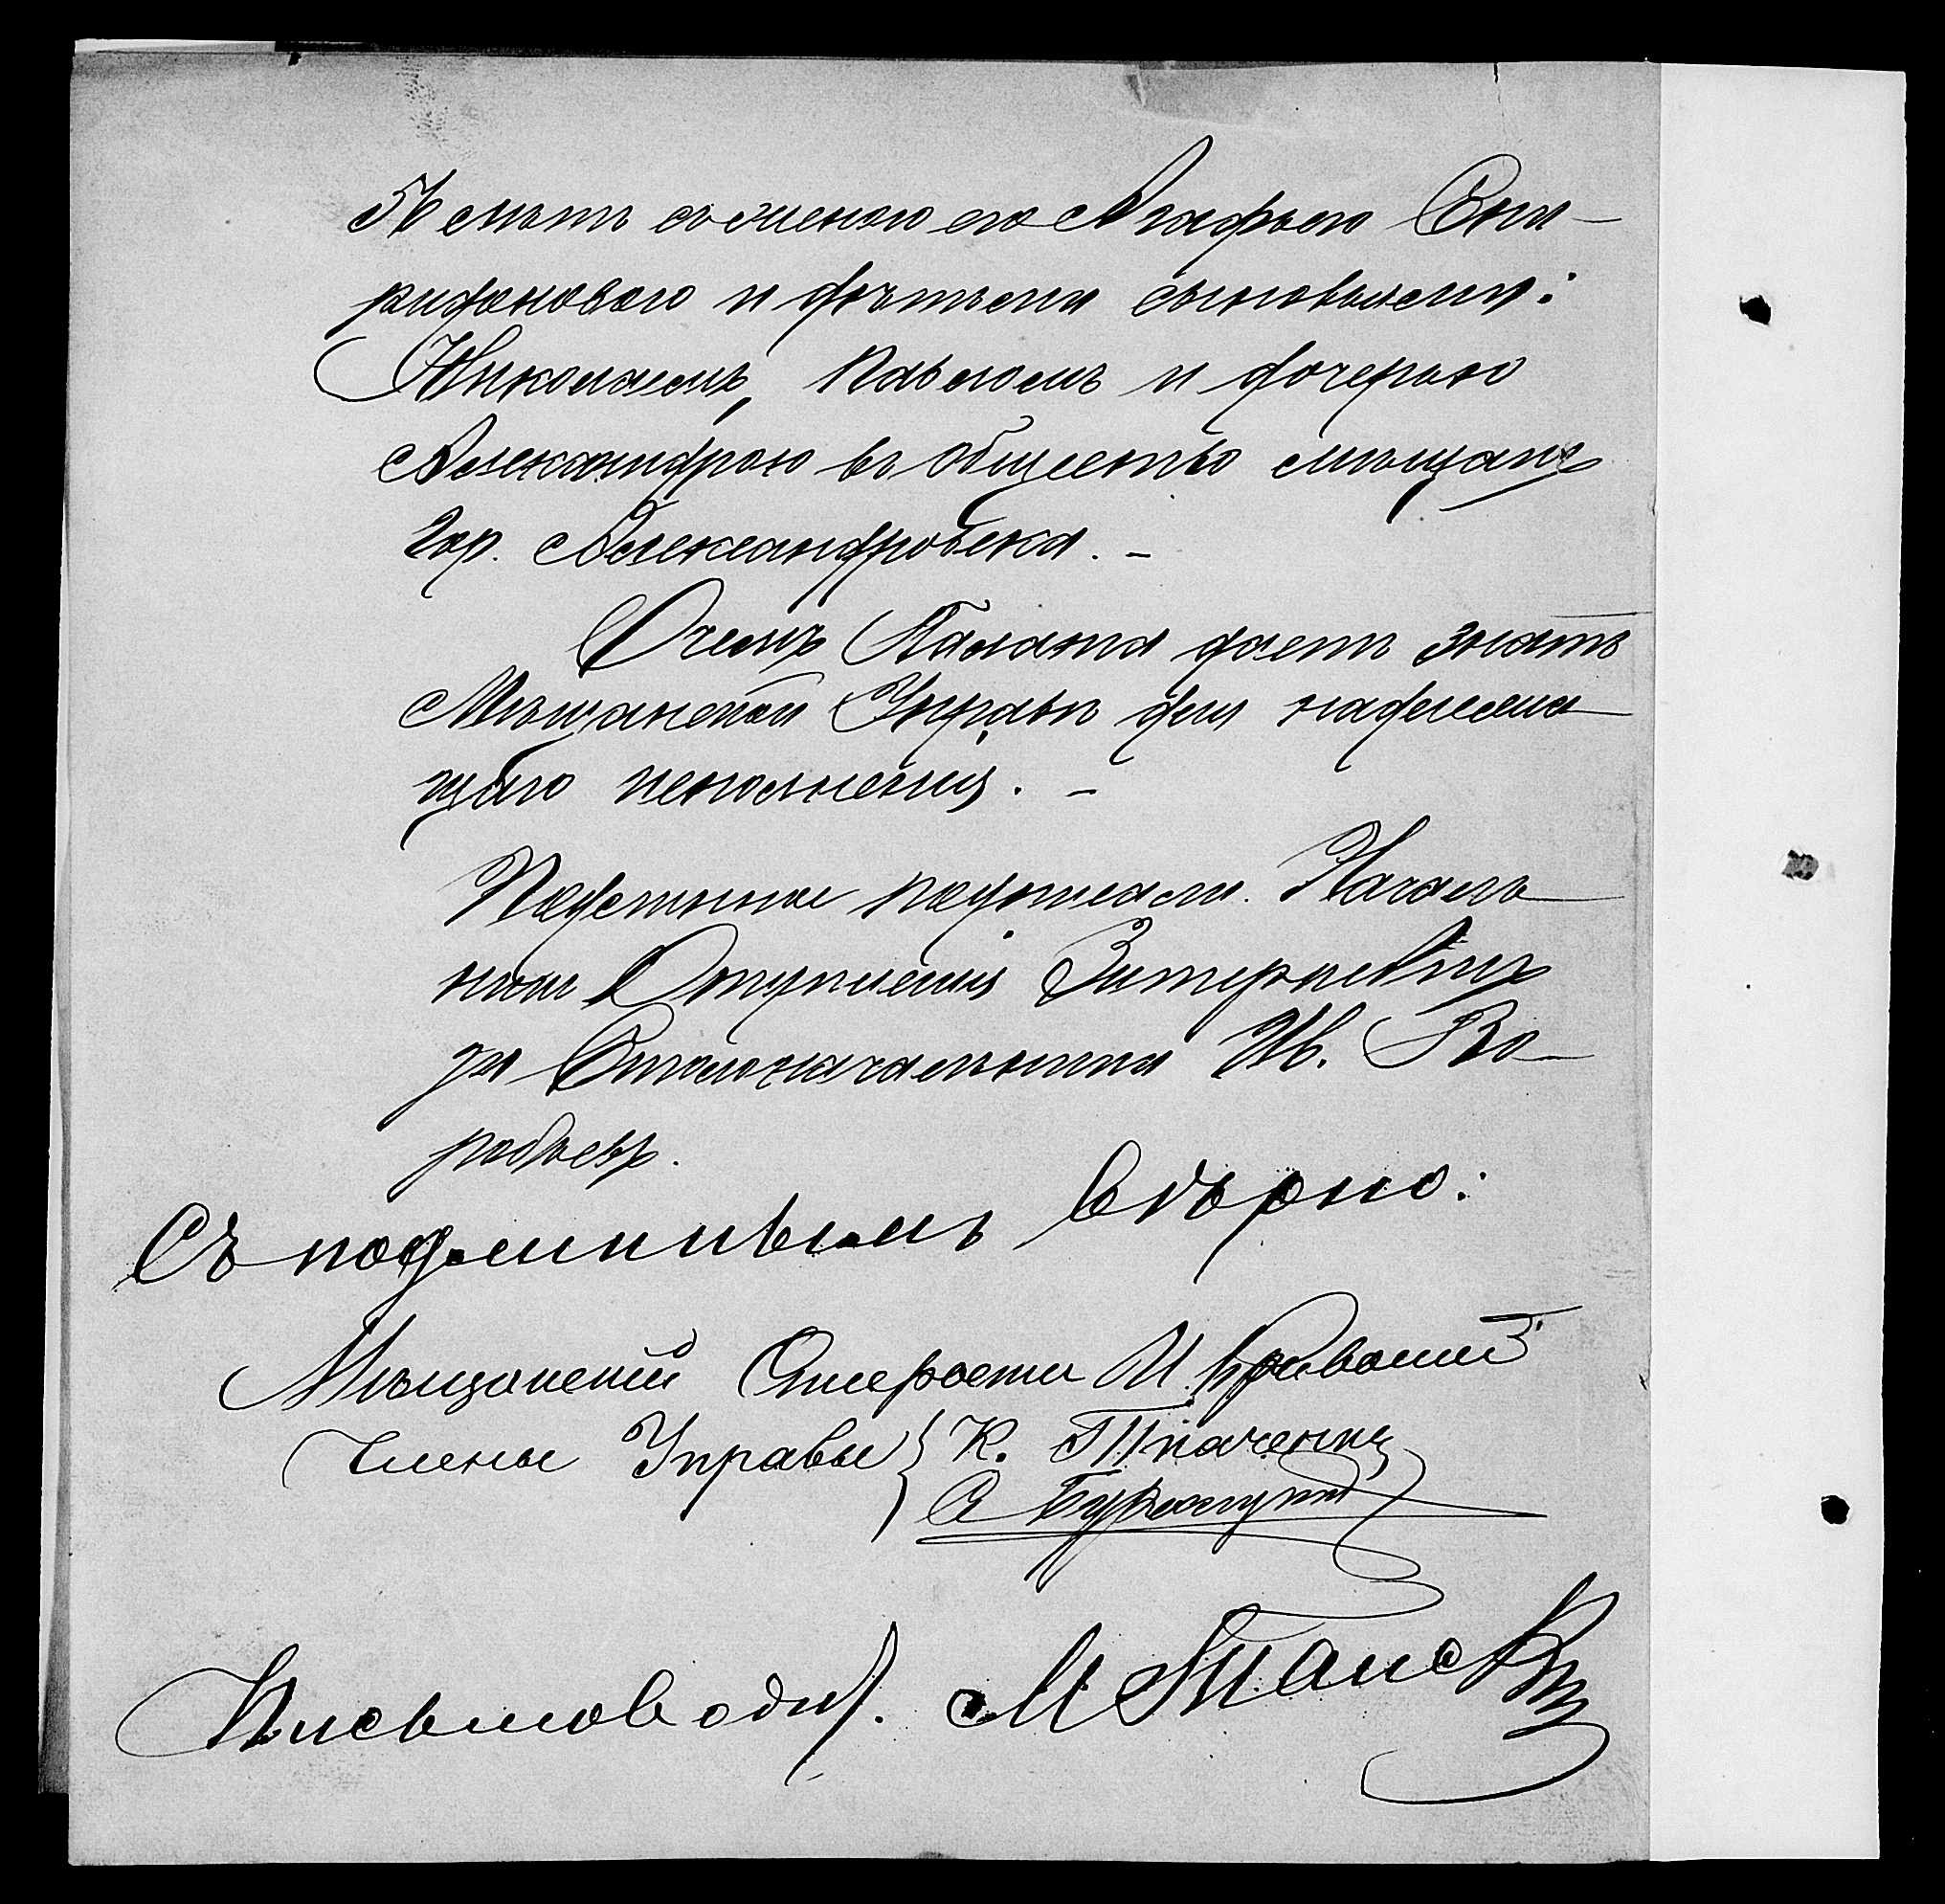 съ женою его Агафьею Спи-
ридоновою и дѣтьми сыновьями:
Николаемъ, Павломъ и дочерью
Александрою въ общество мѣщанъ
гор. Александровска. –
О чемъ Палата даетъ знать
Мѣщанской Управѣ для надлежа-
щаго исполненія. –
Подлинное подписали. Началь-
никъ Отдѣленія
за Столоначальника Ив. Во-
робьевъ.
Съ подлиннымъ вѣрно:
Мѣщанскій Староста И.
Члены Управы { К. Ткаченко
С
Письмоводит. М